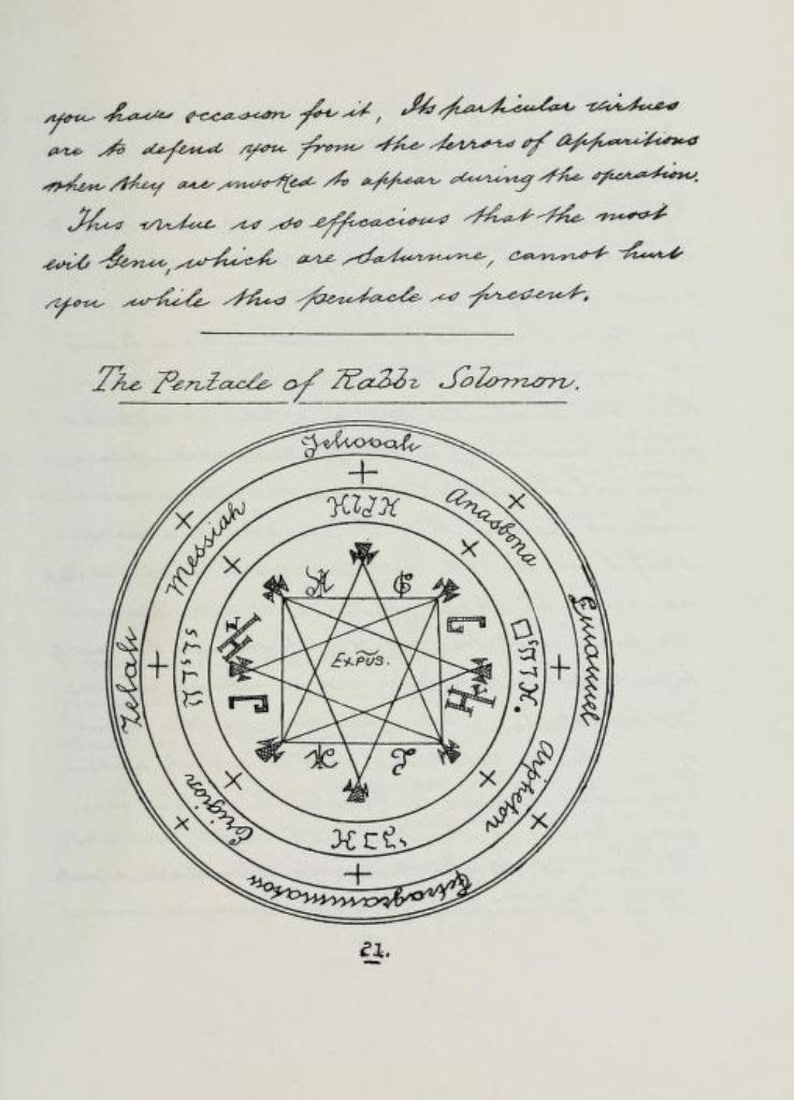 you have occasion for it, Its particular virtues
are to defend you from the terrors of Apparitions
when they are invoked to appear during the operation.
This virtue is so efficacious that the most
evil Genii, which are Saturnine, cannot hurt
you while this pentacle is present.
The Pentacle of Rabbi Solomon.
Jehovah
Anasbona
Emanuel
Arpheton
Tetragrammaton
Erigion
Zelah
Messiah
Expus.
21.